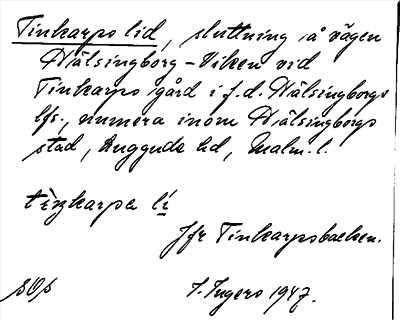 Tinkarps lid, sluttning å vägen
Hälsingborg - Viken vid
Tinkarps gård i f.d. Hälsingborgs
lfs., numera inom Hälsingborgs
stad, Luggude hd, Malm. l.
tèŋkarpa lí
Jfr Tinkarpsbacken.
I. Ingers 1947.